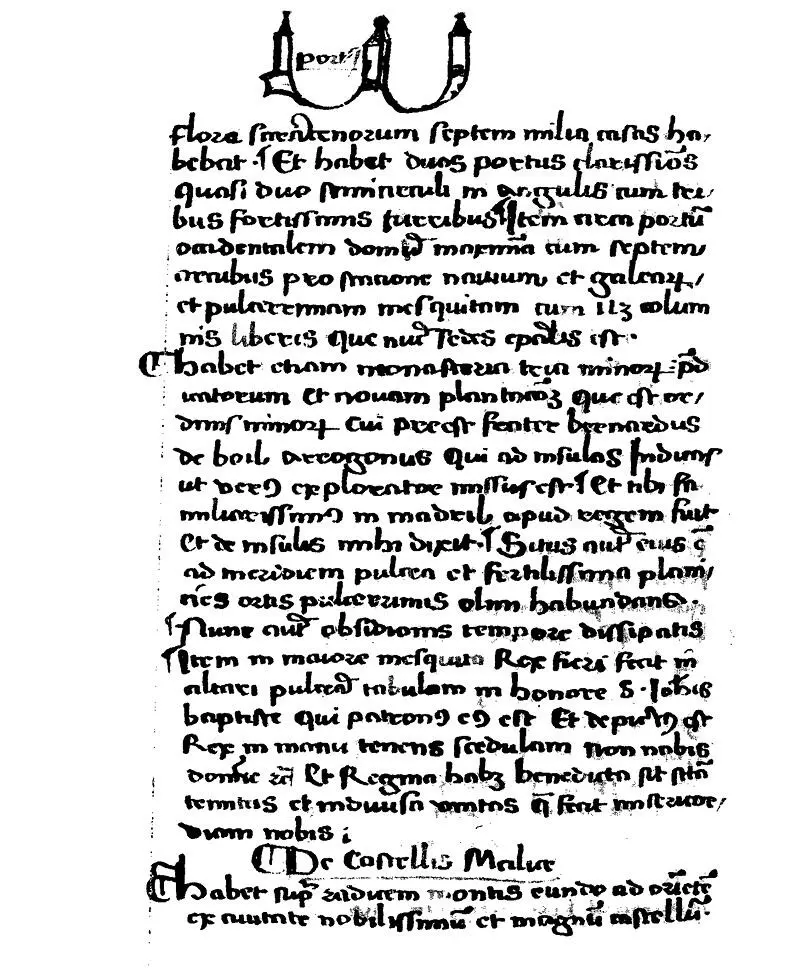 port9
flore sarracenorum septem milia casas ha/
bebat · Et habet duos portus clarissiōs
quasi duo semicirculi in angulis cum tri/
bus fortissimis turribus Item circa portū
occidentalem domū maximā cum septem
arcubus pro statione navium et galearꝝ /
et pulcerrimam mesquitam cum 113 colum
nis liberis que nūc sedes epalis est ·
habet etiam monasteria tria minorꝝ : pd
icatorum et novam plantacōꝫ que est or/
dinis minorꝝ cui preest frater bernardus
de boil arrogonus qui ad insulas Indicas
ut ver9 explorator missus est Et tibi fa
miliarissim9 in madril apud regem fuit
Et de insulis michi dixit Situs autē eius
ad meridiem pulcra et fertilissima plani/
cies ortis pulcerrimis olim habundans ·
Nunc autē obsidionis tempore dissipatis
Item in maiore mesquita Rex fieri fecit in
altari pulcrā tabulam in honore S · Johīs
baptiste qui patron9 e9 est Et depict9 est
Rex in manu tenens scedulam non nobis
domine Et Regina habꝫ benedicta sit scā
trinitas et indivisa unitas q fecit misericor/
diam nobis ;
De Castellis Malice
habet supra radicem montis eundo ad oriētē
ex civitate nobilissimū et magnū castellū ·